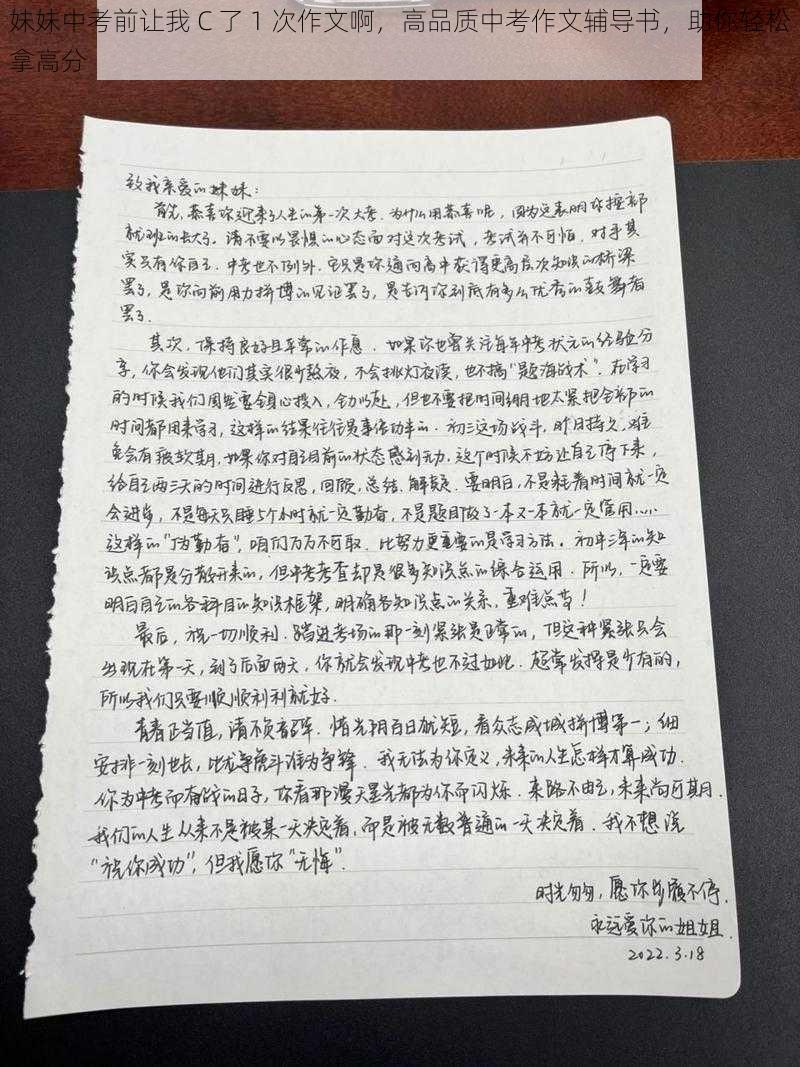 妹妹中考前让我 C 了 1 次作文啊，高品质中考作文辅导书，助你轻松
拿高分
致我亲爱的妹妹：
首先，恭喜你迎来了人生的第一次大考。为什么用恭喜呢，因为这表明你按部
就班的长大了。请不要以畏惧的心态面对这次考试，考试并不可怕，对手其
实只有你自己。中考也不例外，它只是你通向高中获得更高层次知识的桥梁
罢了，是你向前用力拼搏的见证罢了，是告诉你到底有多么优秀的鼓舞者
罢了。
其次，保持良好且平常的作息。如果你也曾关注每年中考状元的经验分
享，你会发现他们其实很少熬夜，不会挑灯夜读，也不搞“题海战术”。在学习
的时候我们固然要全身心投入，全力以赴，但也不要把时间绷地太紧把全部的
时间都用来学习，这样的结果往往是事倍功半的。初三这场战斗，旷日持久，难
免会有疲软期，如果你对自己目前的状态感到无力，这个时候不妨让自己停下来，
给自己两三天的时间进行反思，回顾，总结，解疑。要明白，不是耗着时间就一定
会进步，不是每天只睡5个小时就一定勤奋，不是题目做了一本又一本就一定管用……
这样的“伪勤奋”，咱们万万不可取。比努力更重要的是学习方法。初中三年的知
识点都是分散开来的，但中考考查却是很多知识点的综合运用。所以，一定要
明白自己的各科目的知识框架，明确各知识点的关系，重难点等！
最后，祝一切顺利。踏进考场的那一刻紧张是正常的，但这种紧张只会
出现在第一天，到了后面两天，你就会发现中考也不过如此。超常发挥是少有的，
所以我们只要顺顺利利就好。
青春正当值，请不负韶华。惜光阴百日犹短，看众志成城拼搏第一；细
安排一刻也长，比龙争虎斗谁为争锋。我无法为你定义，未来的人生怎样才算成功。
你为中考而奋战的日子，你看那漫天星光都为你而闪烁。来路不由己，未来尚可其月。
我们的人生从来不是被某一天决定着，而是被无数普通的一天决定着。我不想说
“祝你成功”，但我愿你“无悔”。
时光匆匆，愿你步履不停。
永远爱你的姐姐。
2022.3.18